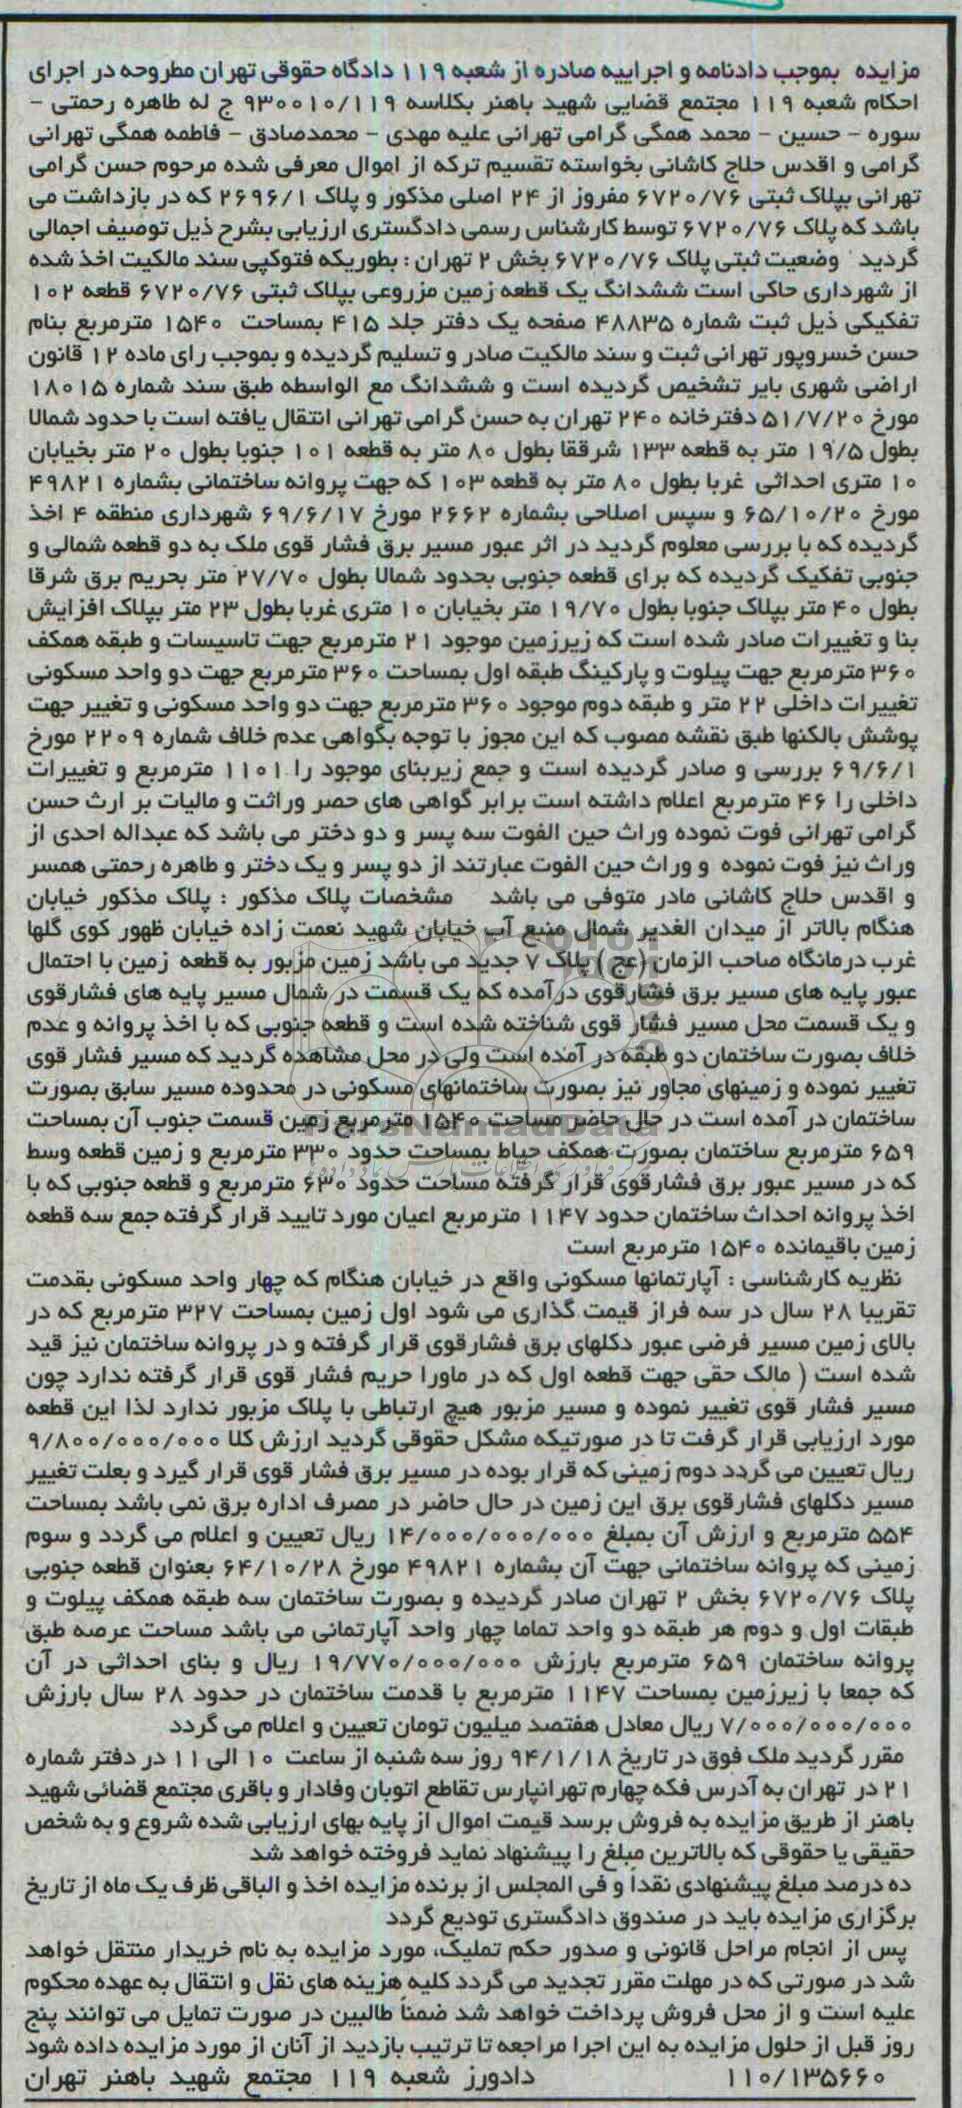 مزایده بموجب دادنامه و اجراییه صادره از شعبه ۱۱۹ دادگاه حقوقی تهران مطروحه در اجرای
احکام شعبه ۱۱۹ مجتمع قضایی شهید باهنر بکلاسه ۹۳۰۰۱۰/۱۱۹ ج له طاهره رحمتی –
سوره – حسین – محمد همگی گرامی تهرانی علیه مهدی – محمدصادق – فاطمه همگی تهرانی
گرامی و اقدس حلاج کاشانی بخواسته تقسیم ترکه از اموال معرفی شده مرحوم حسن گرامی
تهرانی بپلاک ثبتی ۶۷۲۰/۷۶ مفروز از ۲۴ اصلی مذکور و پلاک ۲۶۹۶/۱ که در بازداشت می
باشد که پلاک ۶۷۲۰/۷۶ توسط کارشناس رسمی دادگستری ارزیابی بشرح ذیل توصیف اجمالی
گردید وضعیت ثبتی پلاک ۶۷۲۰/۷۶ بخش ۲ تهران : بطوریکه فتوکپی سند مالکیت اخذ شده
از شهرداری حاکی است ششدانگ یک قطعه زمین مزروعی بپلاک ثبتی ۶۷۲۰/۷۶ قطعه ۱۰۲
تفکیکی ذیل ثبت شماره ۴۸۸۳۵ صفحه یک دفتر جلد ۴۱۵ بمساحت ۱۵۴۰ مترمربع بنام
حسن خسروپور تهرانی ثبت و سند مالکیت صادر و تسلیم گردیده و بموجب رای ماده ۱۲ قانون
اراضی شهری بایر تشخیص گردیده است و ششدانگ مع الواسطه طبق سند شماره ۱۸۰۱۵
مورخ ۵۱/۷/۲۰ دفترخانه ۲۴۰ تهران به حسن گرامی تهرانی انتقال یافته است با حدود شمالا
بطول ۱۹/۵ متر به قطعه ۱۳۳ شرققا بطول ۸۰ متر به قطعه ۱۰۱ جنوبا بطول ۲۰ متر بخیابان
۱۰ متری احداثی غربا بطول ۸۰ متر به قطعه ۱۰۳ که جهت پروانه ساختمانی بشماره ۴۹۸۲۱
مورخ ۶۵/۱۰/۲۰ و سپس اصلاحی بشماره ۲۶۶۲ مورخ ۶۹/۶/۱۷ شهرداری منطقه ۴ اخذ
گردیده که با بررسی معلوم گردید در اثر عبور مسیر برق فشار قوی ملک به دو قطعه شمالی و
جنوبی تفکیک گردیده که برای قطعه جنوبی بحدود شمالا بطول ۲۷/۷۰ متر بحریم برق شرقا
بطول ۴۰ متر بپلاک جنوبا بطول ۱۹/۷۰ متر بخیابان ۱۰ متری غربا بطول ۲۳ متر بپلاک افزایش
بنا و تغییرات صادر شده است که زیرزمین موجود ۲۱ مترمربع جهت تاسیسات و طبقه همکف
۳۶۰ مترمربع جهت پیلوت و پارکینگ طبقه اول بمساحت ۳۶۰ مترمربع جهت دو واحد مسکونی
تغییرات داخلی ۲۲ متر و طبقه دوم موجود ۳۶۰ مترمربع جهت دو واحد مسکونی و تغییر جهت
پوشش بالکنها طبق نقشه مصوب که این مجوز با توجه بگواهی عدم خلاف شماره ۲۲۰۹ مورخ
۶۹/۶/۱ بررسی و صادر گردیده است و جمع زیربنای موجود را ۱۱۰۱ مترمربع و تغییرات
داخلی را ۴۶ مترمربع اعلام داشته است برابر گواهی های حصر وراثت و مالیات بر ارث حسن
گرامی تهرانی فوت نموده وراث حین الفوت سه پسر و دو دختر می باشد که عبداله احدی از
وراث نیز فوت نموده و وراث حین الفوت عبارتند از دو پسر و یک دختر و طاهره رحمتی همسر
و اقدس حلاج کاشانی مادر متوفی می باشد مشخصات پلاک مذکور : پلاک مذکور خیابان
هنگام بالاتر از میدان الغدیر شمال منبع آب خیابان شهید نعمت زاده خیابان ظهور کوی گلها
غرب درمانگاه صاحب الزمان (عج) پلاک ۷ جدید می باشد زمین مزبور به قطعه زمین با احتمال
عبور پایه های مسیر برق فشارقوی درآمده که یک قسمت در شمال مسیر پایه های فشارقوی
و یک قسمت محل مسیر فشار قوی شناخته شده است و قطعه جنوبی که با اخذ پروانه و عدم
خلاف بصورت ساختمان دو طبقه در آمده است ولی در محل مشاهده گردید که مسیر فشار قوی
تغییر نموده و زمینهای مجاور نیز بصورت ساختمانهای مسکونی در محدوده مسیر سابق بصورت
ساختمان در آمده است در حال حاضر مساحت ۱۵۴۰ مترمربع زمین قسمت جنوب آن بمساحت
۶۵۹ مترمربع ساختمان بصورت همکف حیاط بمساحت حدود ۳۳۰ مترمربع و زمین قطعه وسط
که در مسیر عبور برق فشارقوی قرار گرفته مساحت حدود ۶۳۰ مترمربع و قطعه جنوبی که با
اخذ پروانه احداث ساختمان حدود ۱۱۴۷ مترمربع اعیان مورد تایید قرار گرفته جمع سه قطعه
زمین باقیمانده ۱۵۴۰ مترمربع است
نظریه کارشناسی : آپارتمانها مسکونی واقع در خیابان هنگام که چهار واحد مسکونی بقدمت
تقریبا ۲۸ سال در سه فراز قیمت گذاری می شود اول زمین بمساحت ۳۲۷ مترمربع که در
بالای زمین مسیر فرضی عبور دکلهای برق فشارقوی قرار گرفته و در پروانه ساختمان نیز قید
شده است ( مالک حقی جهت قطعه اول که در ماورا حریم فشار قوی قرار گرفته ندارد چون
مسیر فشار قوی تغییر نموده و مسیر مزبور هیچ ارتباطی با پلاک مزبور ندارد لذا این قطعه
مورد ارزیابی قرار گرفت تا در صورتیکه مشکل حقوقی گردید ارزش کلا ۹/۸۰۰/۰۰۰/۰۰۰
ریال تعیین می گردد دوم زمینی که قرار بوده در مسیر برق فشار قوی قرار گیرد و بعلت تغییر
مسیر دکلهای فشارقوی برق این زمین در حال حاضر در مصرف اداره برق نمی باشد بمساحت
۵۵۴ مترمربع و ارزش آن بمبلغ ۱۴/۰۰۰/۰۰۰/۰۰۰ ریال تعیین و اعلام می گردد و سوم
زمینی که پروانه ساختمانی جهت آن بشماره ۴۹۸۲۱ مورخ ۶۴/۱۰/۲۸ بعنوان قطعه جنوبی
پلاک ۶۷۲۰/۷۶ بخش ۲ تهران صادر گردیده و بصورت ساختمان سه طبقه همکف پیلوت و
طبقات اول و دوم هر طبقه دو واحد تماما چهار واحد آپارتمانی می باشد مساحت عرصه طبق
پروانه ساختمان ۶۵۹ مترمربع بارزش ۱۹/۷۷۰/۰۰۰/۰۰۰ ریال و بنای احداثی در آن
که جمعا با زیرزمین بمساحت ۱۱۴۷ مترمربع با قدمت ساختمان در حدود ۲۸ سال بارزش
۷/۰۰۰/۰۰۰/۰۰۰ ریال معادل هفتصد میلیون تومان تعیین و اعلام می گردد
مقرر گردید ملک فوق در تاریخ ۹۴/۱/۱۸ روز سه شنبه از ساعت ۱۰ الی ۱۱ در دفتر شماره
۲۱ در تهران به آدرس فکه چهارم تهرانپارس تقاطع اتوبان وفادار و باقری مجتمع قضائی شهید
باهنر از طریق مزایده به فروش برسد قیمت اموال از پایه بهای ارزیابی شده شروع و به شخص
حقیقی یا حقوقی که بالاترین مبلغ را پیشنهاد نماید فروخته خواهد شد
ده درصد مبلغ پیشنهادی نقداً و فی المجلس از برنده مزایده اخذ و الباقی ظرف یک ماه از تاریخ
برگزاری مزایده باید در صندوق دادگستری تودیع گردد
پس از انجام مراحل قانونی و صدور حکم تملیک، مورد مزایده به نام خریدار منتقل خواهد
شد در صورتی که در مهلت مقرر تجدید می گردد کلیه هزینه های نقل و انتقال به عهده محکوم
علیه است و از محل فروش پرداخت خواهد شد ضمناً طالبین در صورت تمایل می توانند پنج
روز قبل از حلول مزایده به این اجرا مراجعه تا ترتیب بازدید از آنان از مورد مزایده داده شود
۱۱۰/۱۳۵۶۶۰ دادورز شعبه ۱۱۹ مجتمع شهید باهنر تهران
ParsNamadData